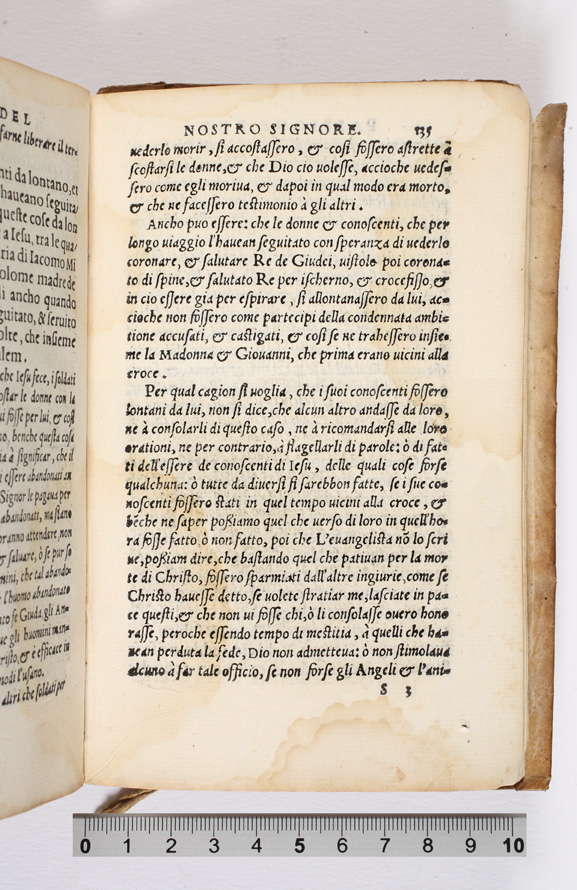 DEL
farne liberare il ter=
nti da lontano, et
haueano seguita
queste cose da lon
a Iesu, tra le qua
ria di Iacomo Mi
olome madre de
li ancho quando
guitato, & seruito
olte, che insieme
lem.
che Iesu fece, i soldati
ostar le donne con la
ui fosse per lui, & cosi
no, benche questa cosa
ia à significar, che il
i essere abandonati da
Signor le pagaua per
abandonati, ma stano
oranno attendere, non
& saluare, ò se pur so
mini, che tal abando=
r l'huomo abandonato
to se Giuda gli An=
ue gli huomini man=
risto, & è efficace in
modi l'usano.
altri che soldati per
NOSTRO SIGNORE. 135
uederlo morir, si accostassero, & cosi fossero astrette à
scostarsi le donne, & che Dio cio uolesse, accioche uedes=
sero come egli moriua, & dapoi in qual modo era morto,
& che ne facessero testimonio à gli altri.
Ancho puo essere: che le donne & conoscenti, che per
longo uiaggio l'hauean seguitato con speranza di uederlo
coronare, & salutare Re de Giudei, uistolo poi corona=
to di spine, & salutato Re per ischerno, & crocefisso, &
in cio essere gia per espirare, si allontanassero da lui, ac=
cioche non fossero come partecipi della condennata ambi=
tione accusati, & castigati, & cosi se ne trahessero insie=
me la Madonna & Giouanni, che prima erano uicini alla
croce.
Per qual cagion si uoglia, che i suoi conoscenti fossero
lontani da lui, non si dice, che alcun altro andasse da loro,
ne à consolarli di questo caso, ne à ricomandarsi alle loro
orationi, ne per contrario, à flagellarli di parole: ò di fat=
ti dell'essere de conoscenti di Iesu, delle quali cose forse
qualchuna: ò tutte da diuersi si sarebbon fatte, se i sue co=
noscenti fossero stati in quel tempo uicini alla croce, &
bēche ne saper possiamo quel che uerso di loro in quell'ho=
ra fosse fatto ò non fatto, poi che L'euangelista nō lo scri
ue, possiam dire, che bastando quel che patiuan per la mor
te di Christo, fossero sparmiati dall'altre ingiurie, come se
Christo hauesse detto, se uolete stratiar me, lasciate in pa=
ce questi, & che non ui fosse chi, ò li consolasse ouero hono
rasse, peroche essendo tempo di mestitia, à quelli che ha=
uean perduta la fede, Dio non admetteua: ò non stimolaua
alcuno à far tale officio, se non forse gli Angeli & l'ani=
S 3
0 1 2 3 4 5 6 7 8 9 10